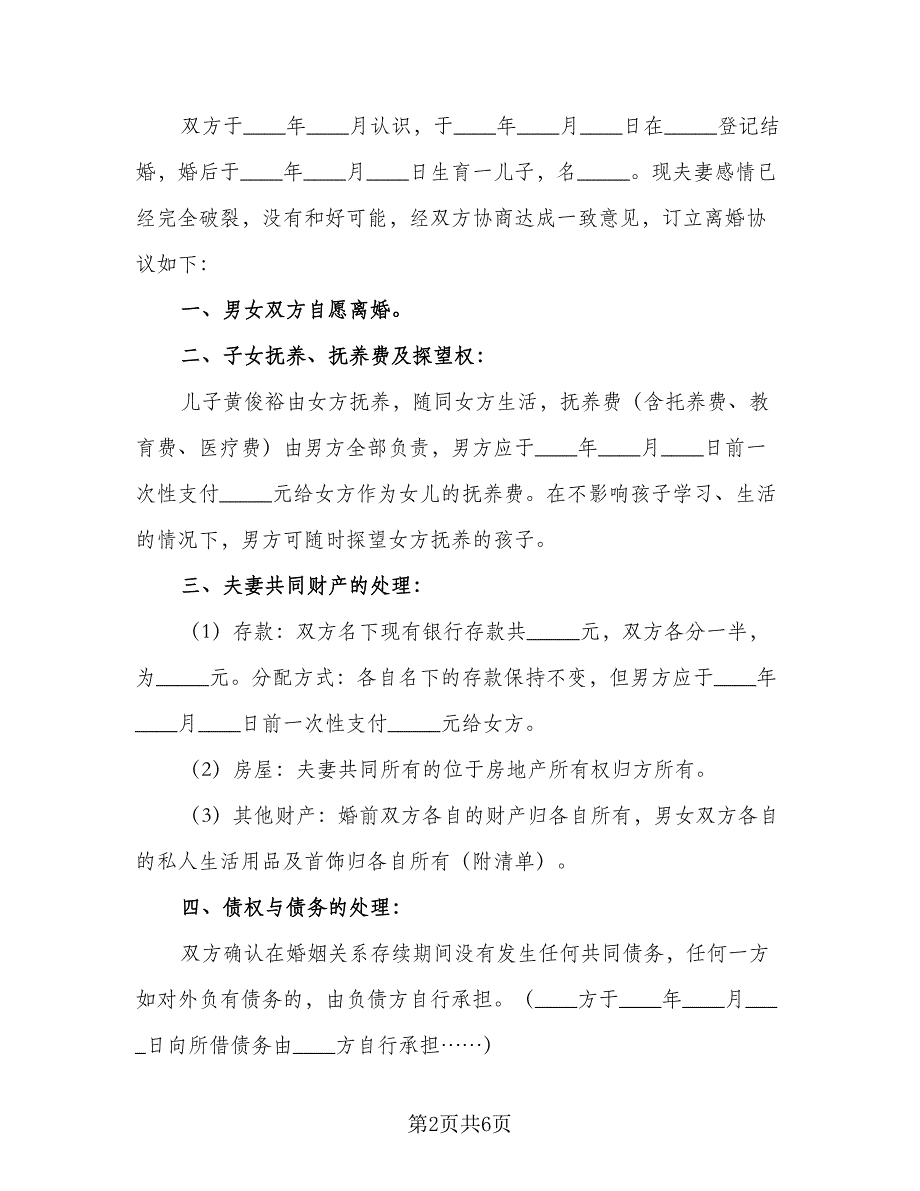 双方于____年____月认识，于____年____月____日在_____登记结
婚，婚后于____年____月____日生育一儿子，名_____。现夫妻感情已
经完全破裂，没有和好可能，经双方协商达成一致意见，订立离婚协
议如下：
一、男女双方自愿离婚。
二、子女抚养、抚养费及探望权：
儿子黄俊裕由女方抚养，随同女方生活，抚养费（含托养费、教
育费、医疗费）由男方全部负责，男方应于____年____月____日前一
次性支付_____元给女方作为女儿的抚养费。在不影响孩子学习、生活
的情况下，男方可随时探望女方抚养的孩子。
三、夫妻共同财产的处理：
（1）存款：双方名下现有银行存款共_____元，双方各分一半，
为_____元。分配方式：各自名下的存款保持不变，但男方应于____年
____月____日前一次性支付_____元给女方。
（2）房屋：夫妻共同所有的位于房地产所有权归方所有。
（3）其他财产：婚前双方各自的财产归各自所有，男女双方各自
的私人生活用品及首饰归各自所有（附清单）。
四、债权与债务的处理：
双方确认在婚姻关系存续期间没有发生任何共同债务，任何一方
如对外负有债务的，由负债方自行承担。（____方于____年____月___
_日向所借债务由____方自行承担……）
第2页共6页